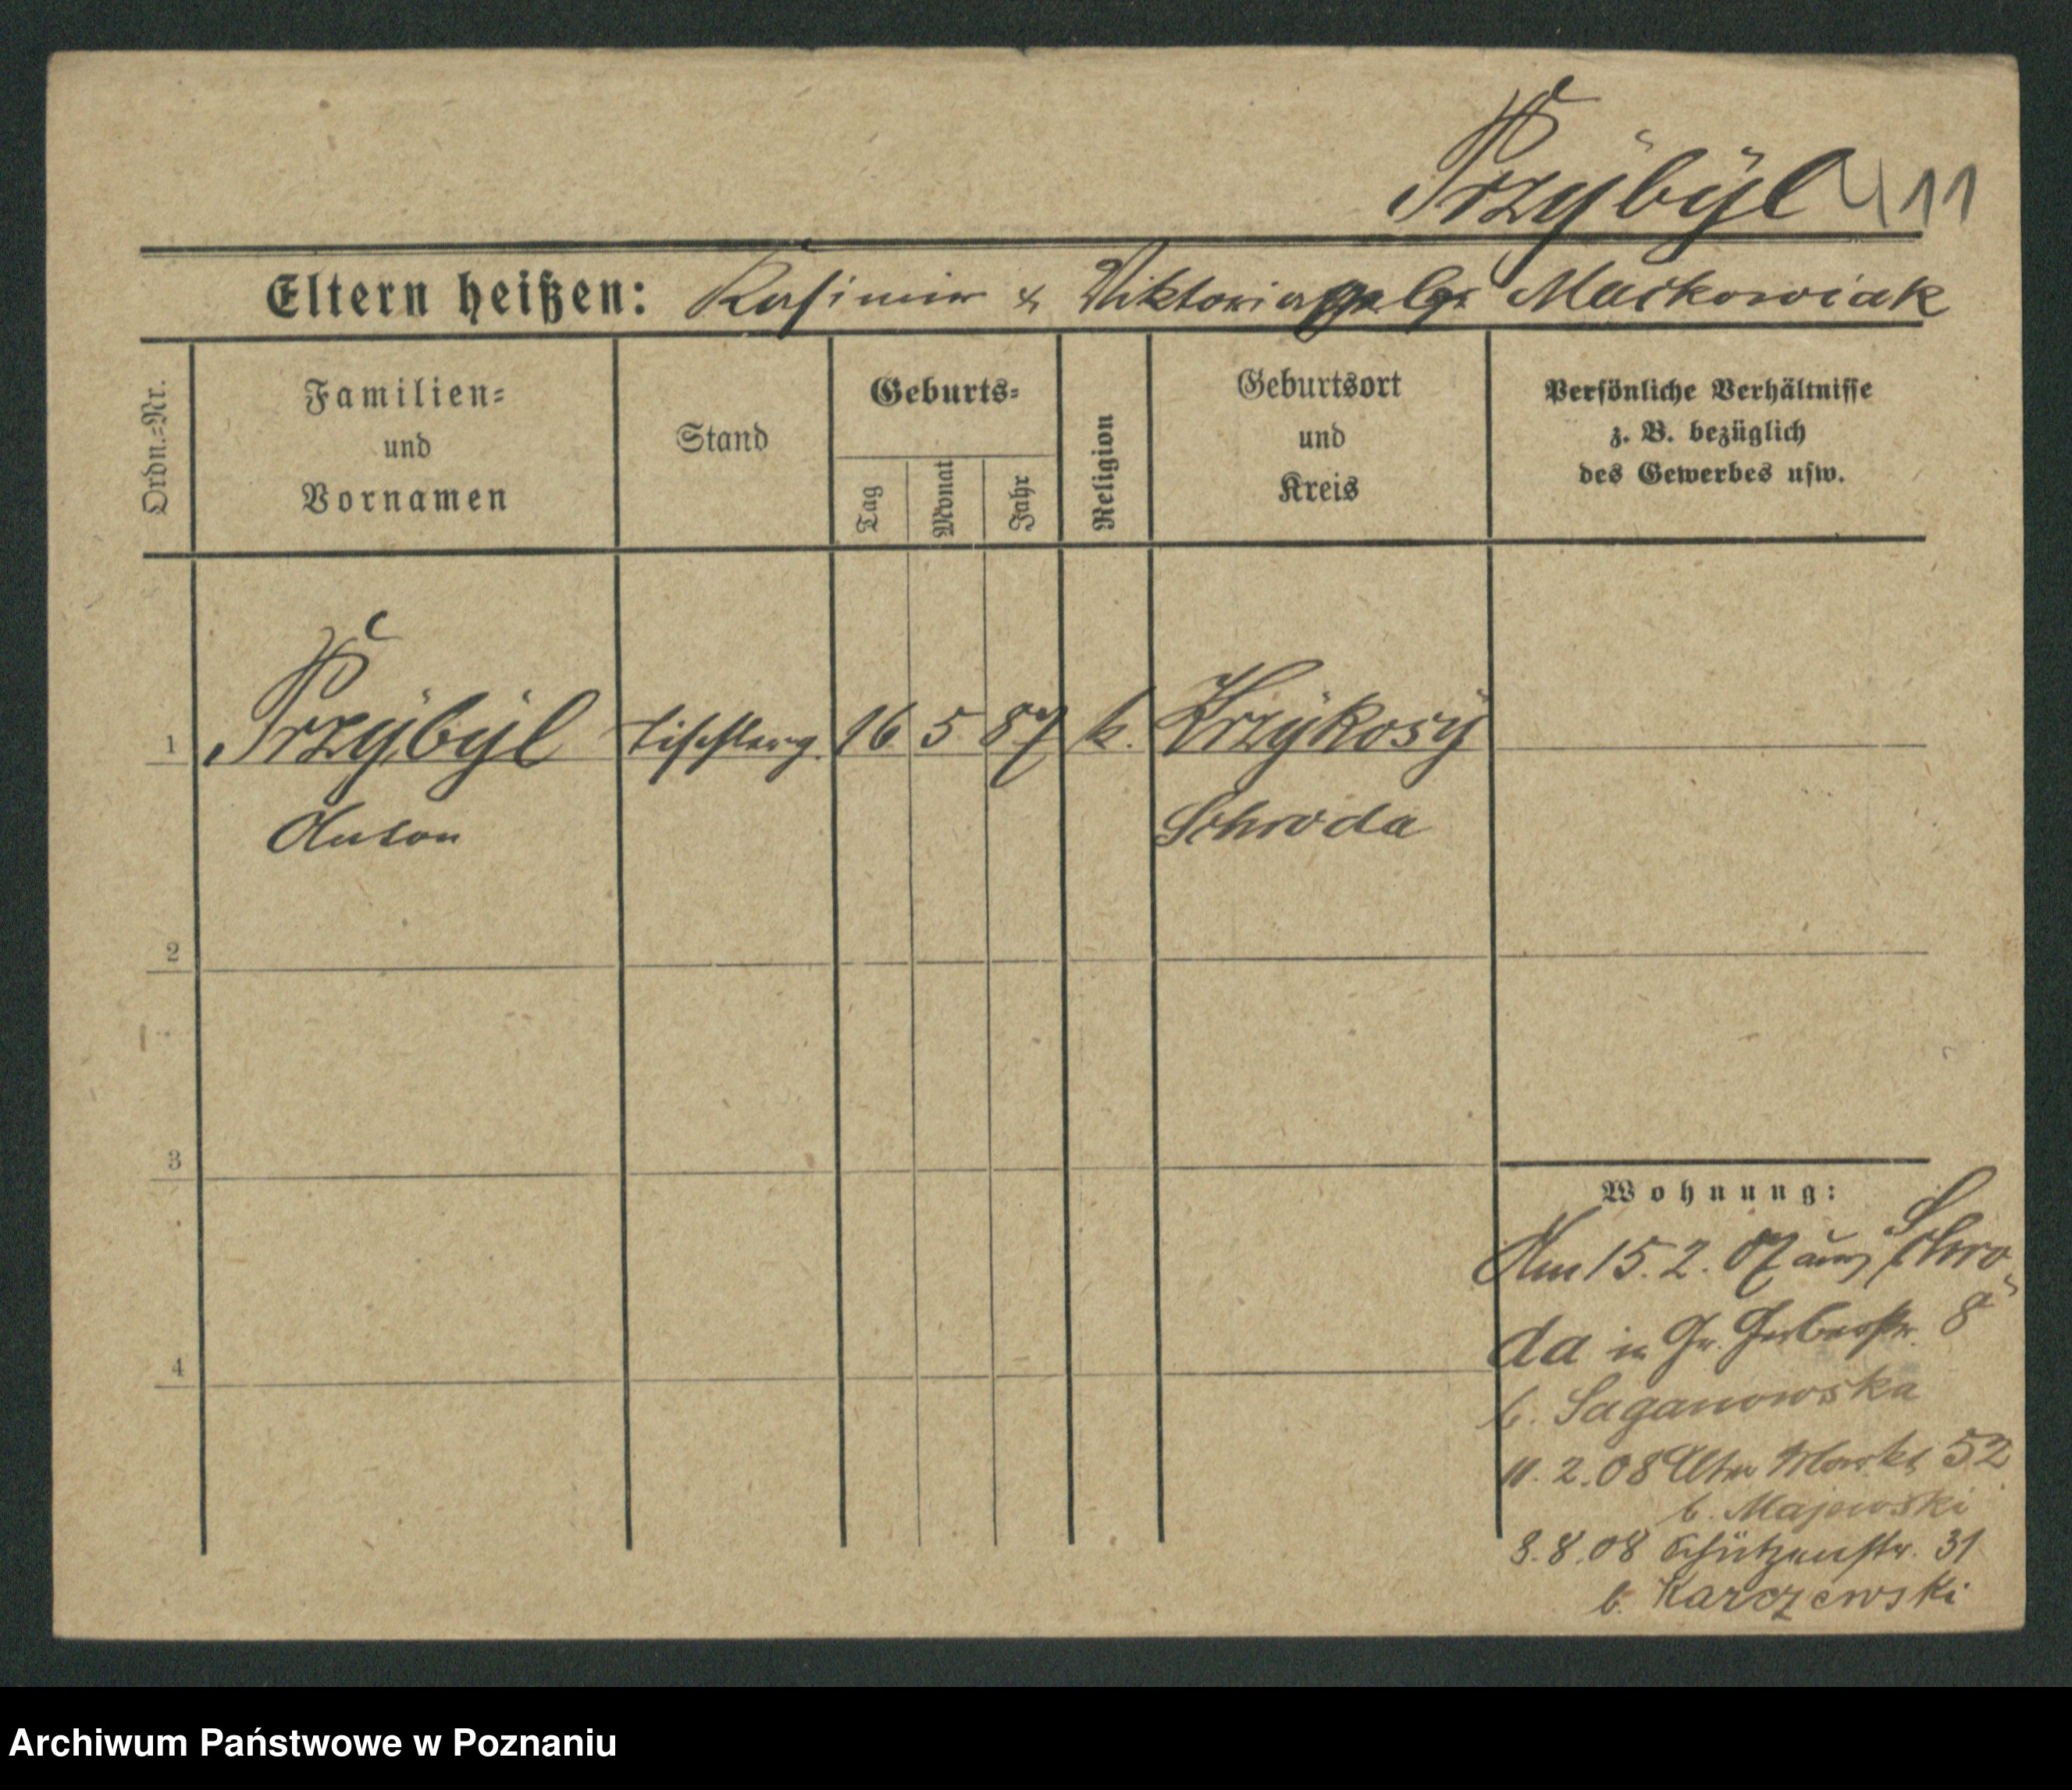 Przybyl 411
Eltern heißen: Kasimir & Viktoria geb. Mackowiak
Ordn.=Nr.
Familien=
und
Vornamen
Stand
Geburts=
Tag
Monat
Jahr
Religion
Geburtsort
und
Kreis
Persönliche Verhältnisse
z. B. bezüglich
des Gewerbes usw.
1 Przÿbÿl Tischlerg. 16 5 87 k. Krzÿkosÿ
Anton Schroda
2
3
4
Wohnung:
Am 15. 2. 07 aus Schro
da in Gr. Gerberstr. 8
b. Saganowska
11. 2. 08 Alter Markt 52
b. Majewski
3. 8. 08 Schützenstr. 31
b. Karczewski
Archiwum Państwowe w Poznaniu